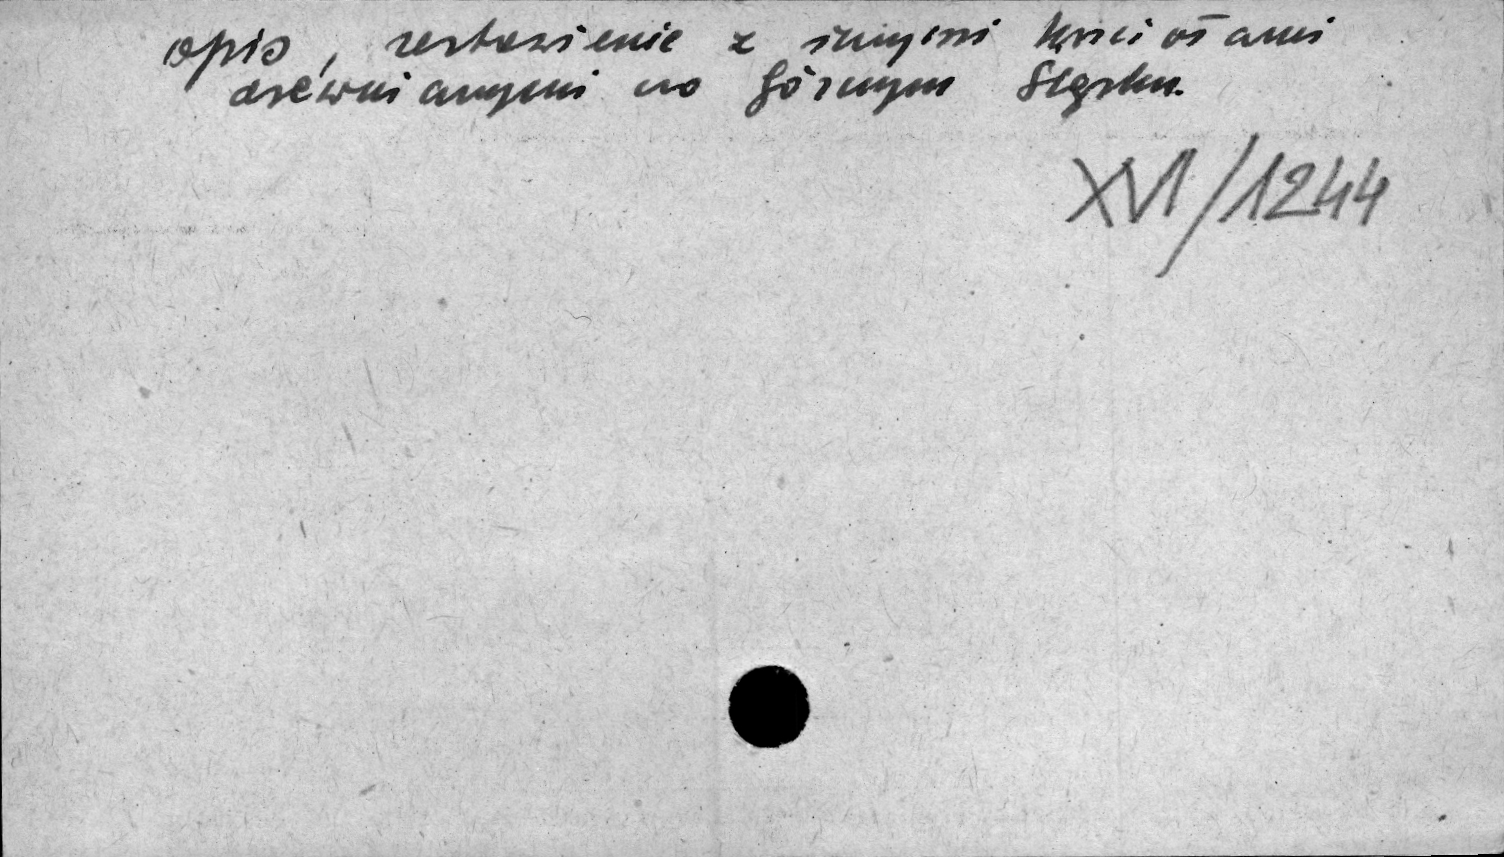 opis, zestawienie z innymi kościołami
drewnianymi na Górnym Śląsku.
XVI/1244